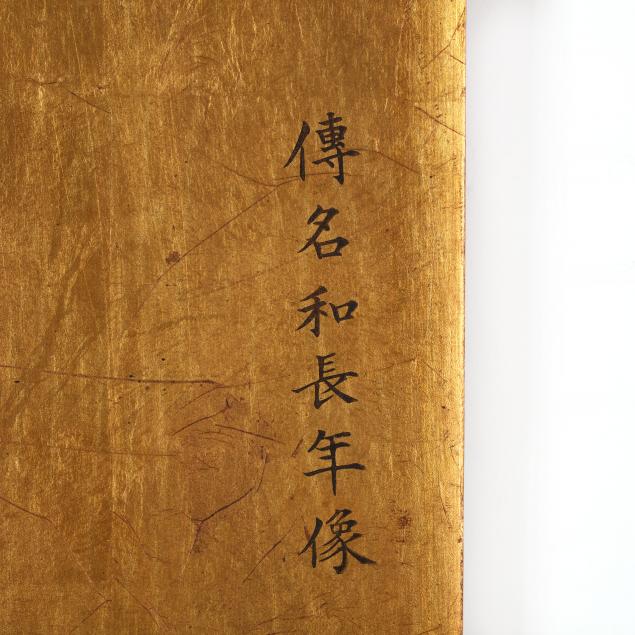 傳名和長年像